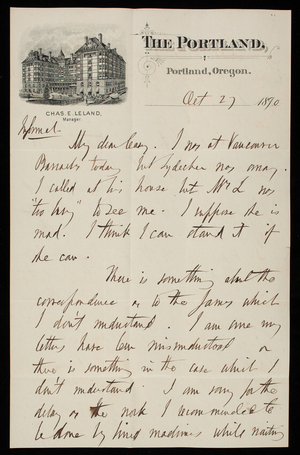 THE PORTLAND,
Portland, Oregon.
CHAS. E. LELAND,
Manager.
Oct 27 1890
My dear Casey. I was at Vancouver
Barracks today but Lydecker was away.
I called at his house but Mrs L was
"too busy" to see me. I suppose she is
mad. I think I can stand it if
she can.
There is something about the
correspondence as to the James which
I don't understand. I am sure my
letters have been misunderstood or
there is something in the case which I
don't understand. I am sorry for the
delay as the work I recommended to
be done by hired machines while waiting